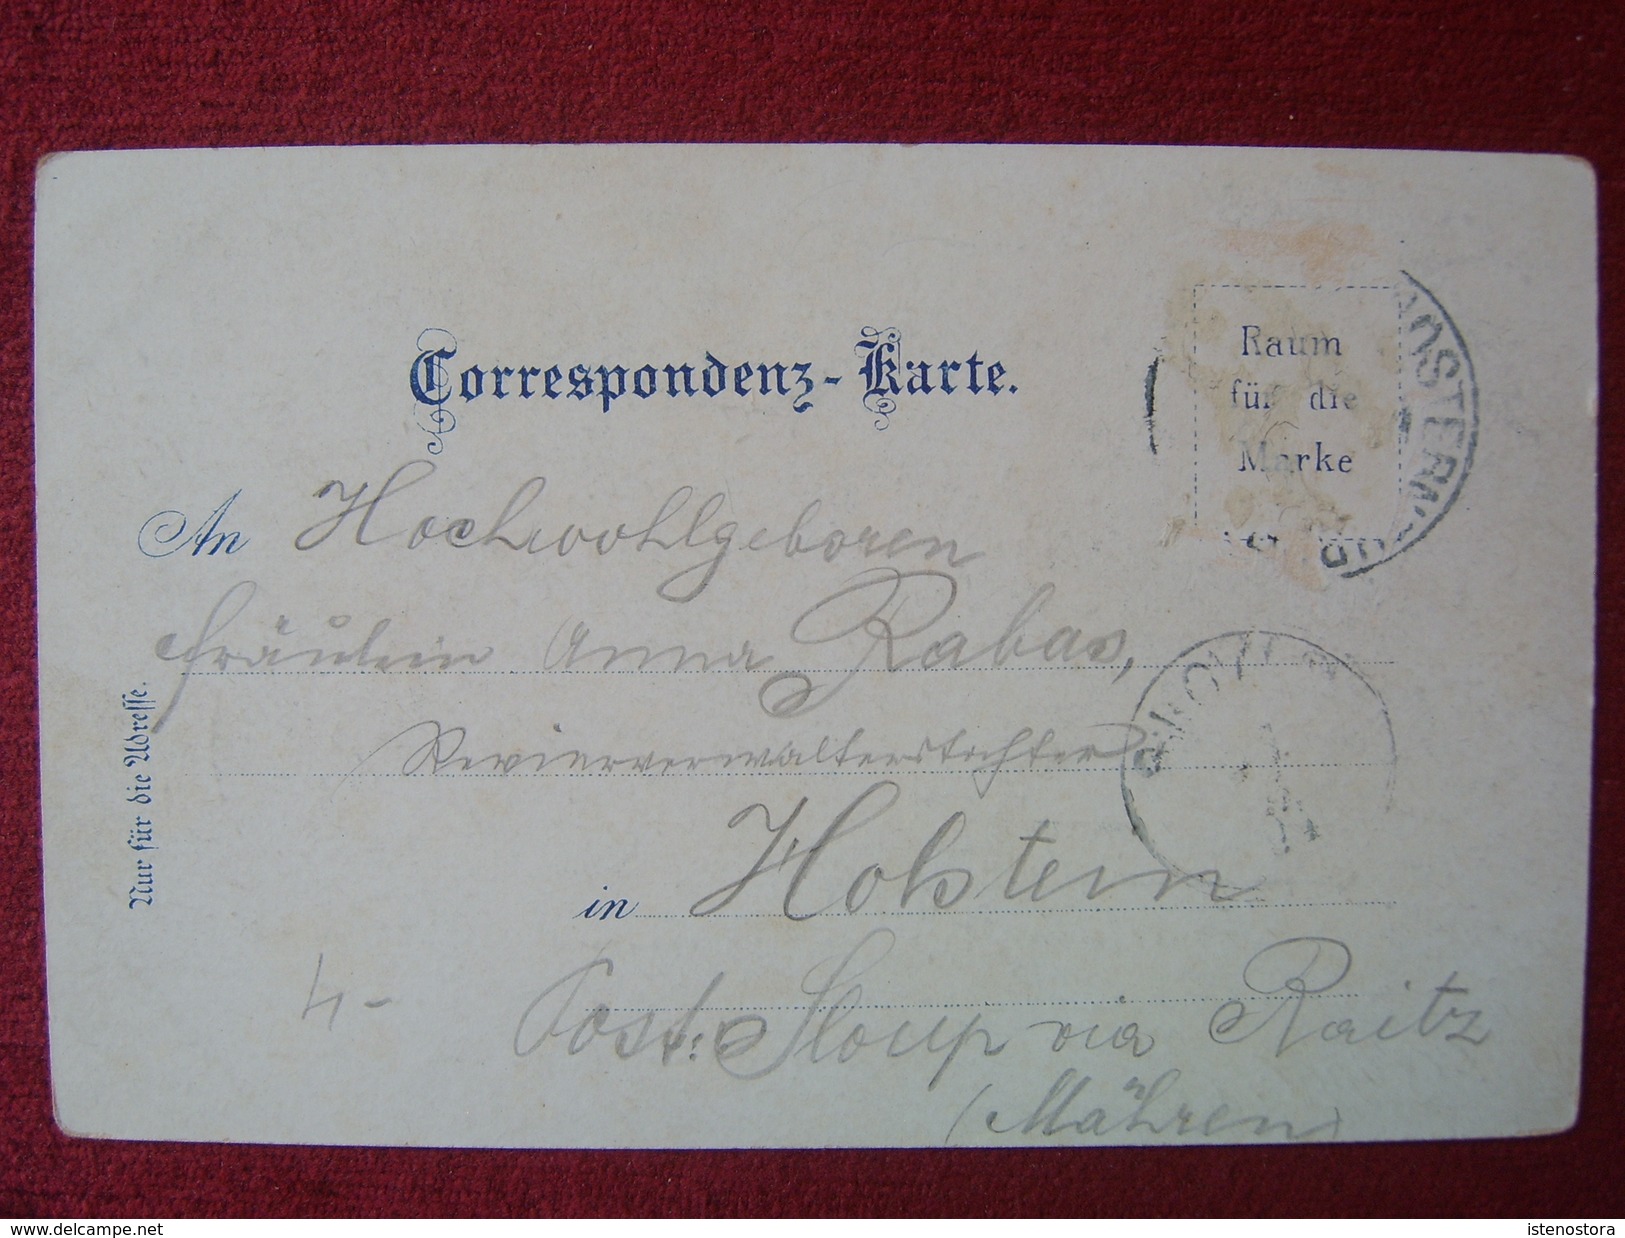 Correspondenz-Karte.
Raum
für die
Marke
An Hochwohlgeboren
Fräulein Anna Rabas,
Revierverwalterstochter
in Holstein
Post: Sloup via Raitz
(Mähren)
4-
Nur für die Adresse.
delcampe.net
istenostora